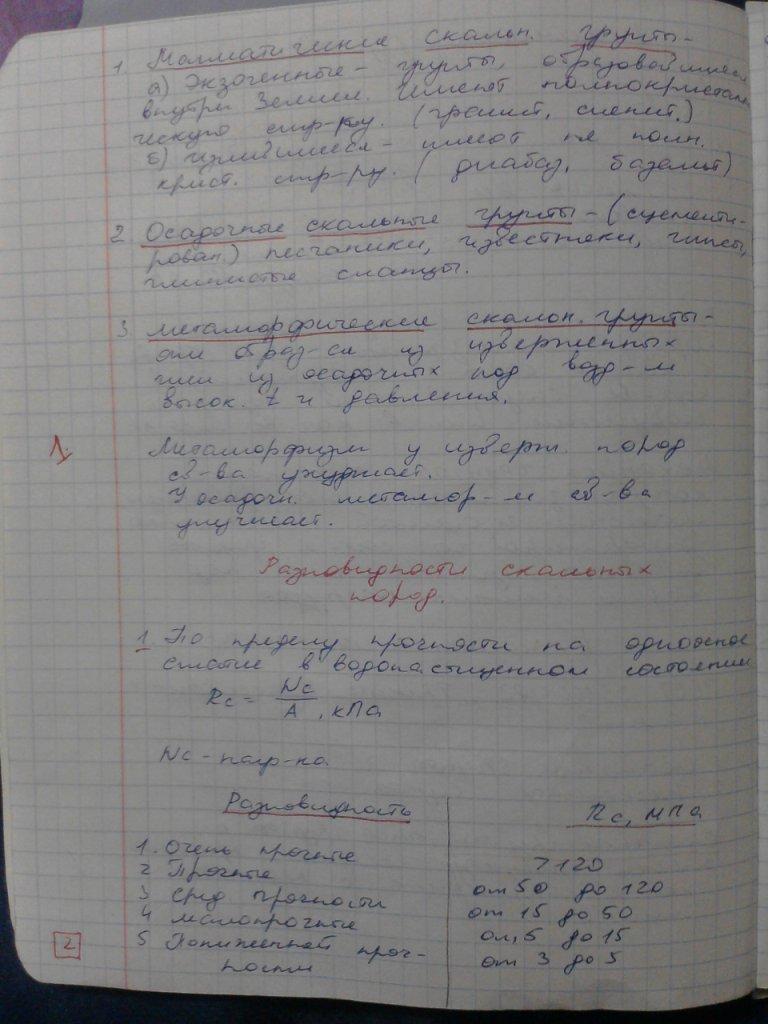 1. Магматические скальн. грунты -
а) Экзогенные - грунты, образовавшиеся
внутри Земли. Имеют полнокристалли-
ческую стр-ру. (гранит, сиенит.)
б) излившиеся - имеют не полн.
крист. стр-ру. (диабаз, базальт)
2 Осадочные скальные грунты - (сцементи-
рован.) песчаники, известняки, гипсы,
глинистые сланцы.
3 Метаморфические скальн. грунты -
они образ-ся из изверженных
или из осадочных под возд-м
высок. t и давления.
1. Метаморфизм у изверж. пород
св-ва ухудшает.
У осадочн. метамор-м св-ва
улучшает.
Разновидности скальных
пород.
1. По пределу прочности на одноосное
сжатие в водонасыщенном состоянии
Rc = Nc/A, кПа
Nc - нагр-ка
Разновидность Rc, мПа
1. Очень прочные >120
2 Прочные от 50 до 120
3 Сред прочности от 15 до 50
4 Малопрочные от 5 до 15
5 Пониженной проч- от 3 до 5
ности
2